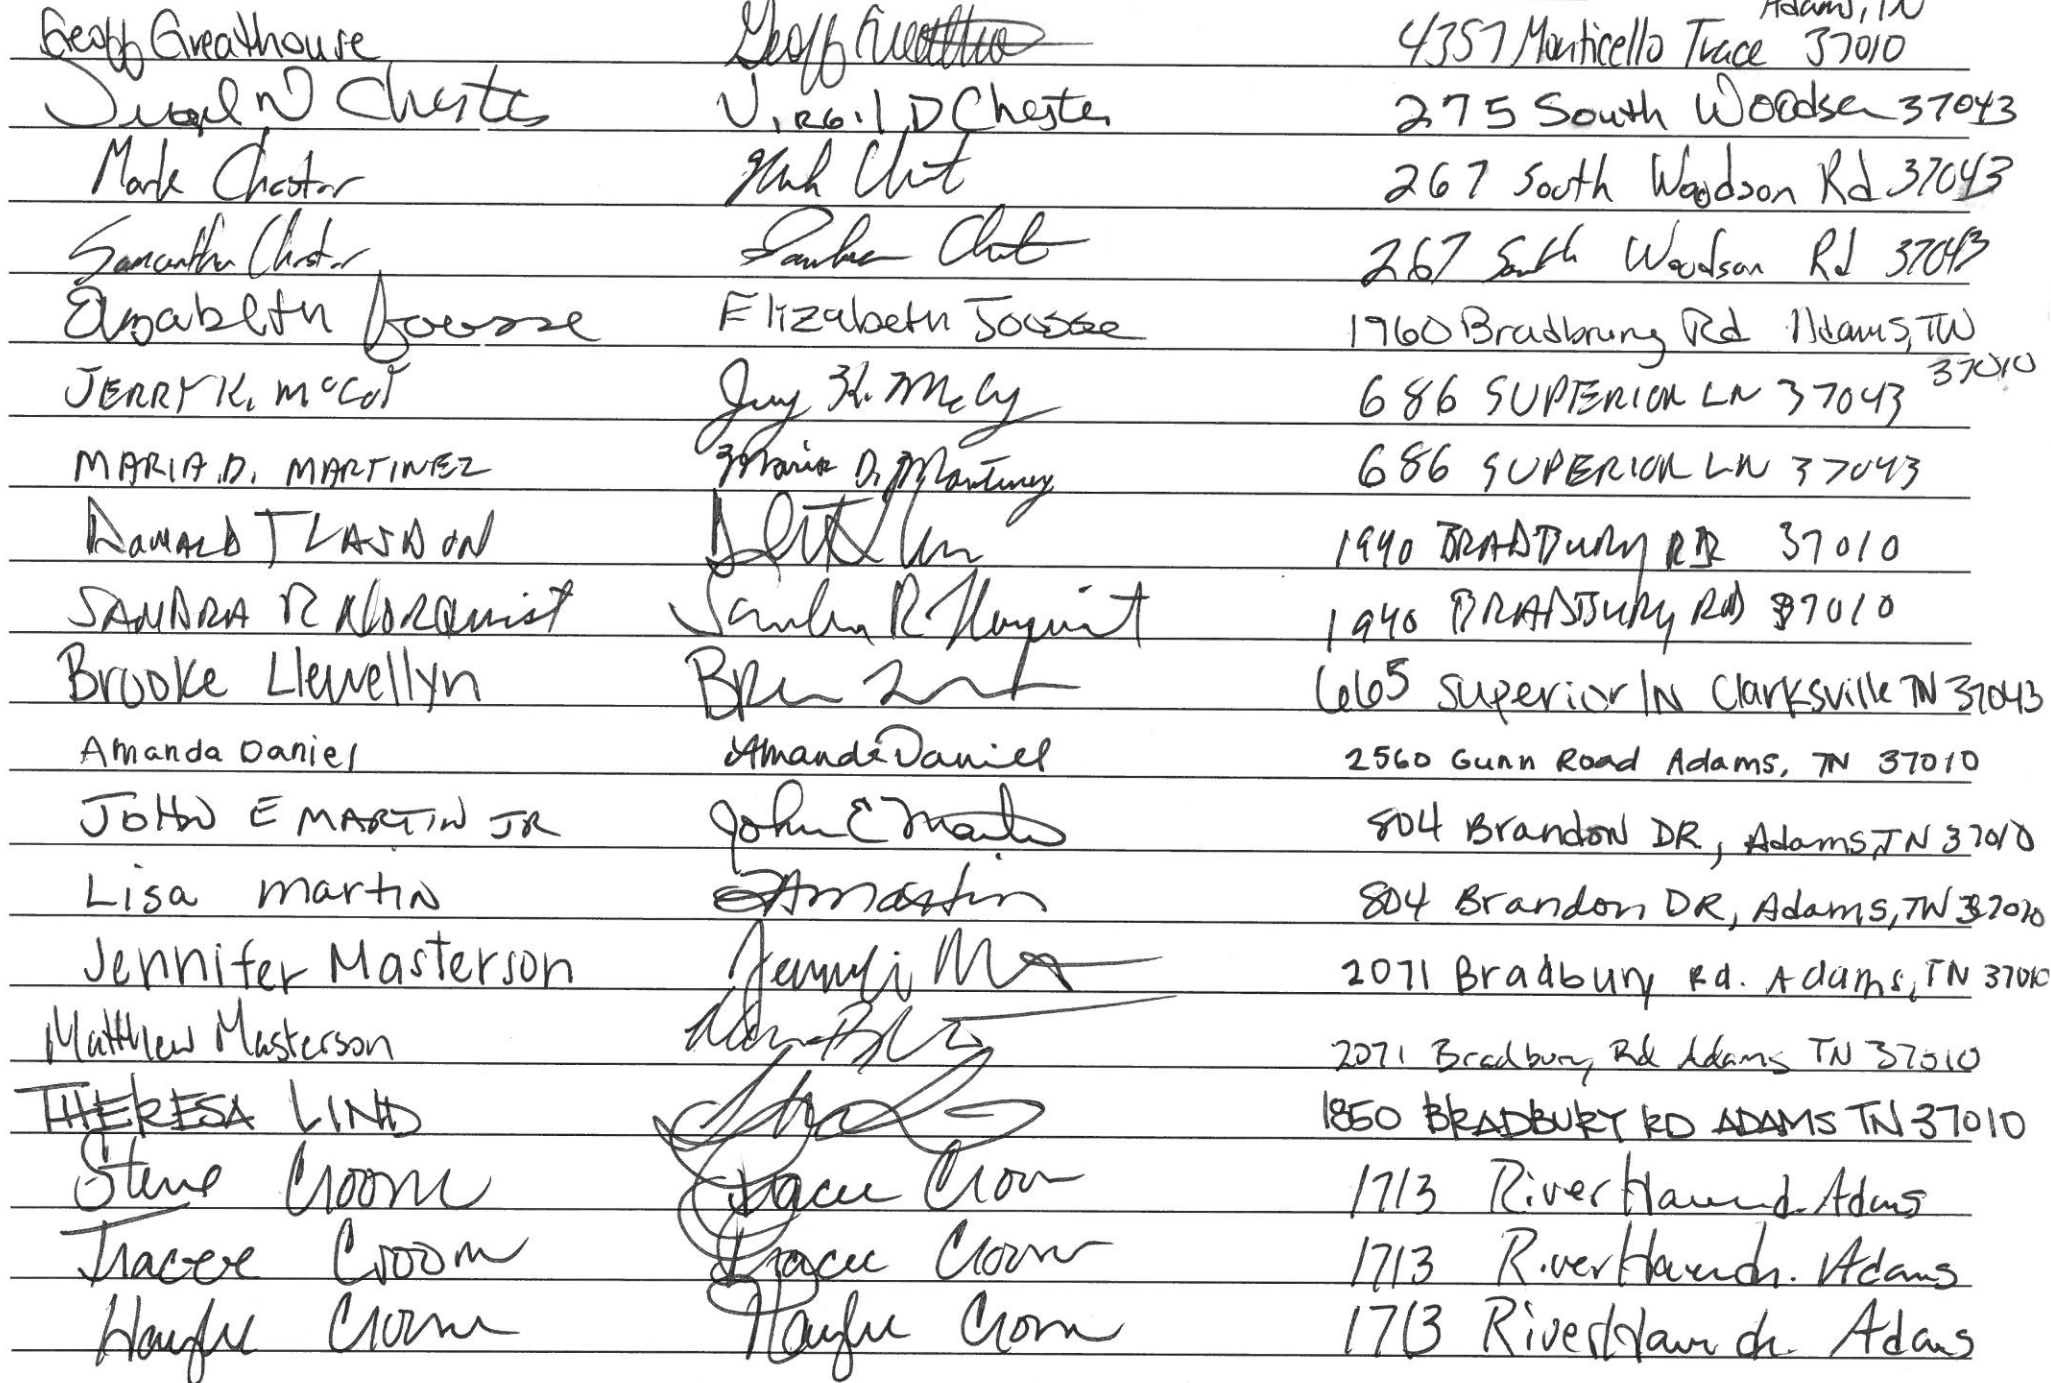 Adams, TN
Geoff Greathouse Geoff Greathouse 4357 Monticello Trace 37010
Virgil D Chester Virgil D Chester 275 South Woodson 37043
Mark Chester Mark Chest 267 South Woodson Rd 37043
Samantha Chester Samantha Chest 267 South Woodson Rd 37043
Elizabeth Jousse Elizabeth Jousse 1960 Bradbury Rd Adams, TN
37010
JERRY K. McCOY Jerry K. McCoy 686 SUPERIOR LN 37043
MARIA D. MARTINEZ Maria D. Martinez 686 SUPERIOR LN 37043
1940 BRADBURY RD 37010
SANDRA R NORQUIST Sandra R Norquist 1940 BRADBURY RD 37010
Brooke Llewellyn 665 Superior ln Clarksville TN 37043
Amanda Daniel Amanda Daniel 2560 Gunn Road Adams, TN 37010
JOHN E MARTIN JR John E Martin 804 Brandon DR, Adams, TN 37010
Lisa Martin Martin 804 Brandon DR, Adams, TN 37010
Jennifer Masterson 2071 Bradbury Rd. Adams, TN 37010
Matthew Masterson 2071 Bradbury Rd Adams TN 37010
THERESA LIND 1850 BRADBURY RD ADAMS TN 37010
Steve Croom Tracee Croom 1713 River Haven dr. Adams
Tracee Croom Tracee Croom 1713 River Haven dr. Adams
Haylee Croom Haylee Croom 1713 River Haven dr. Adams